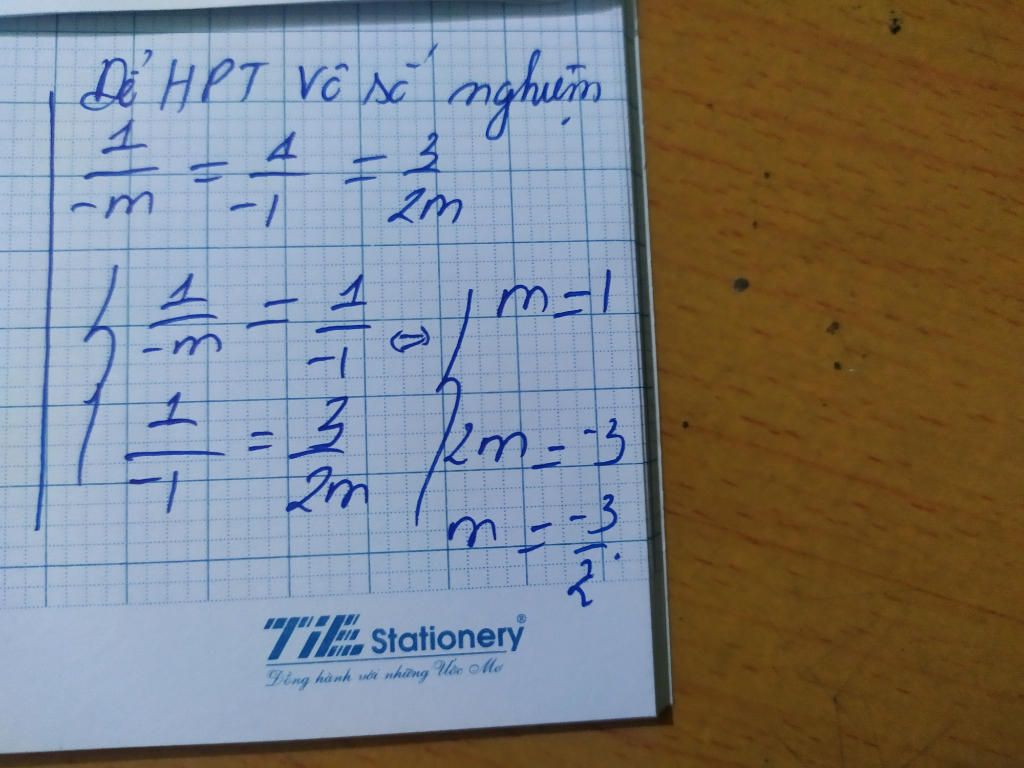 Để HPT Vô số nghiệm
1/-m = 1/-1 = 3/2m
{ 1/-m = 1/-1 ⇔ { m = 1
1/-1 = 3/2m 2m = -3
m = -3/2.
TiE Stationery®
Đồng hành với những Ước Mơ